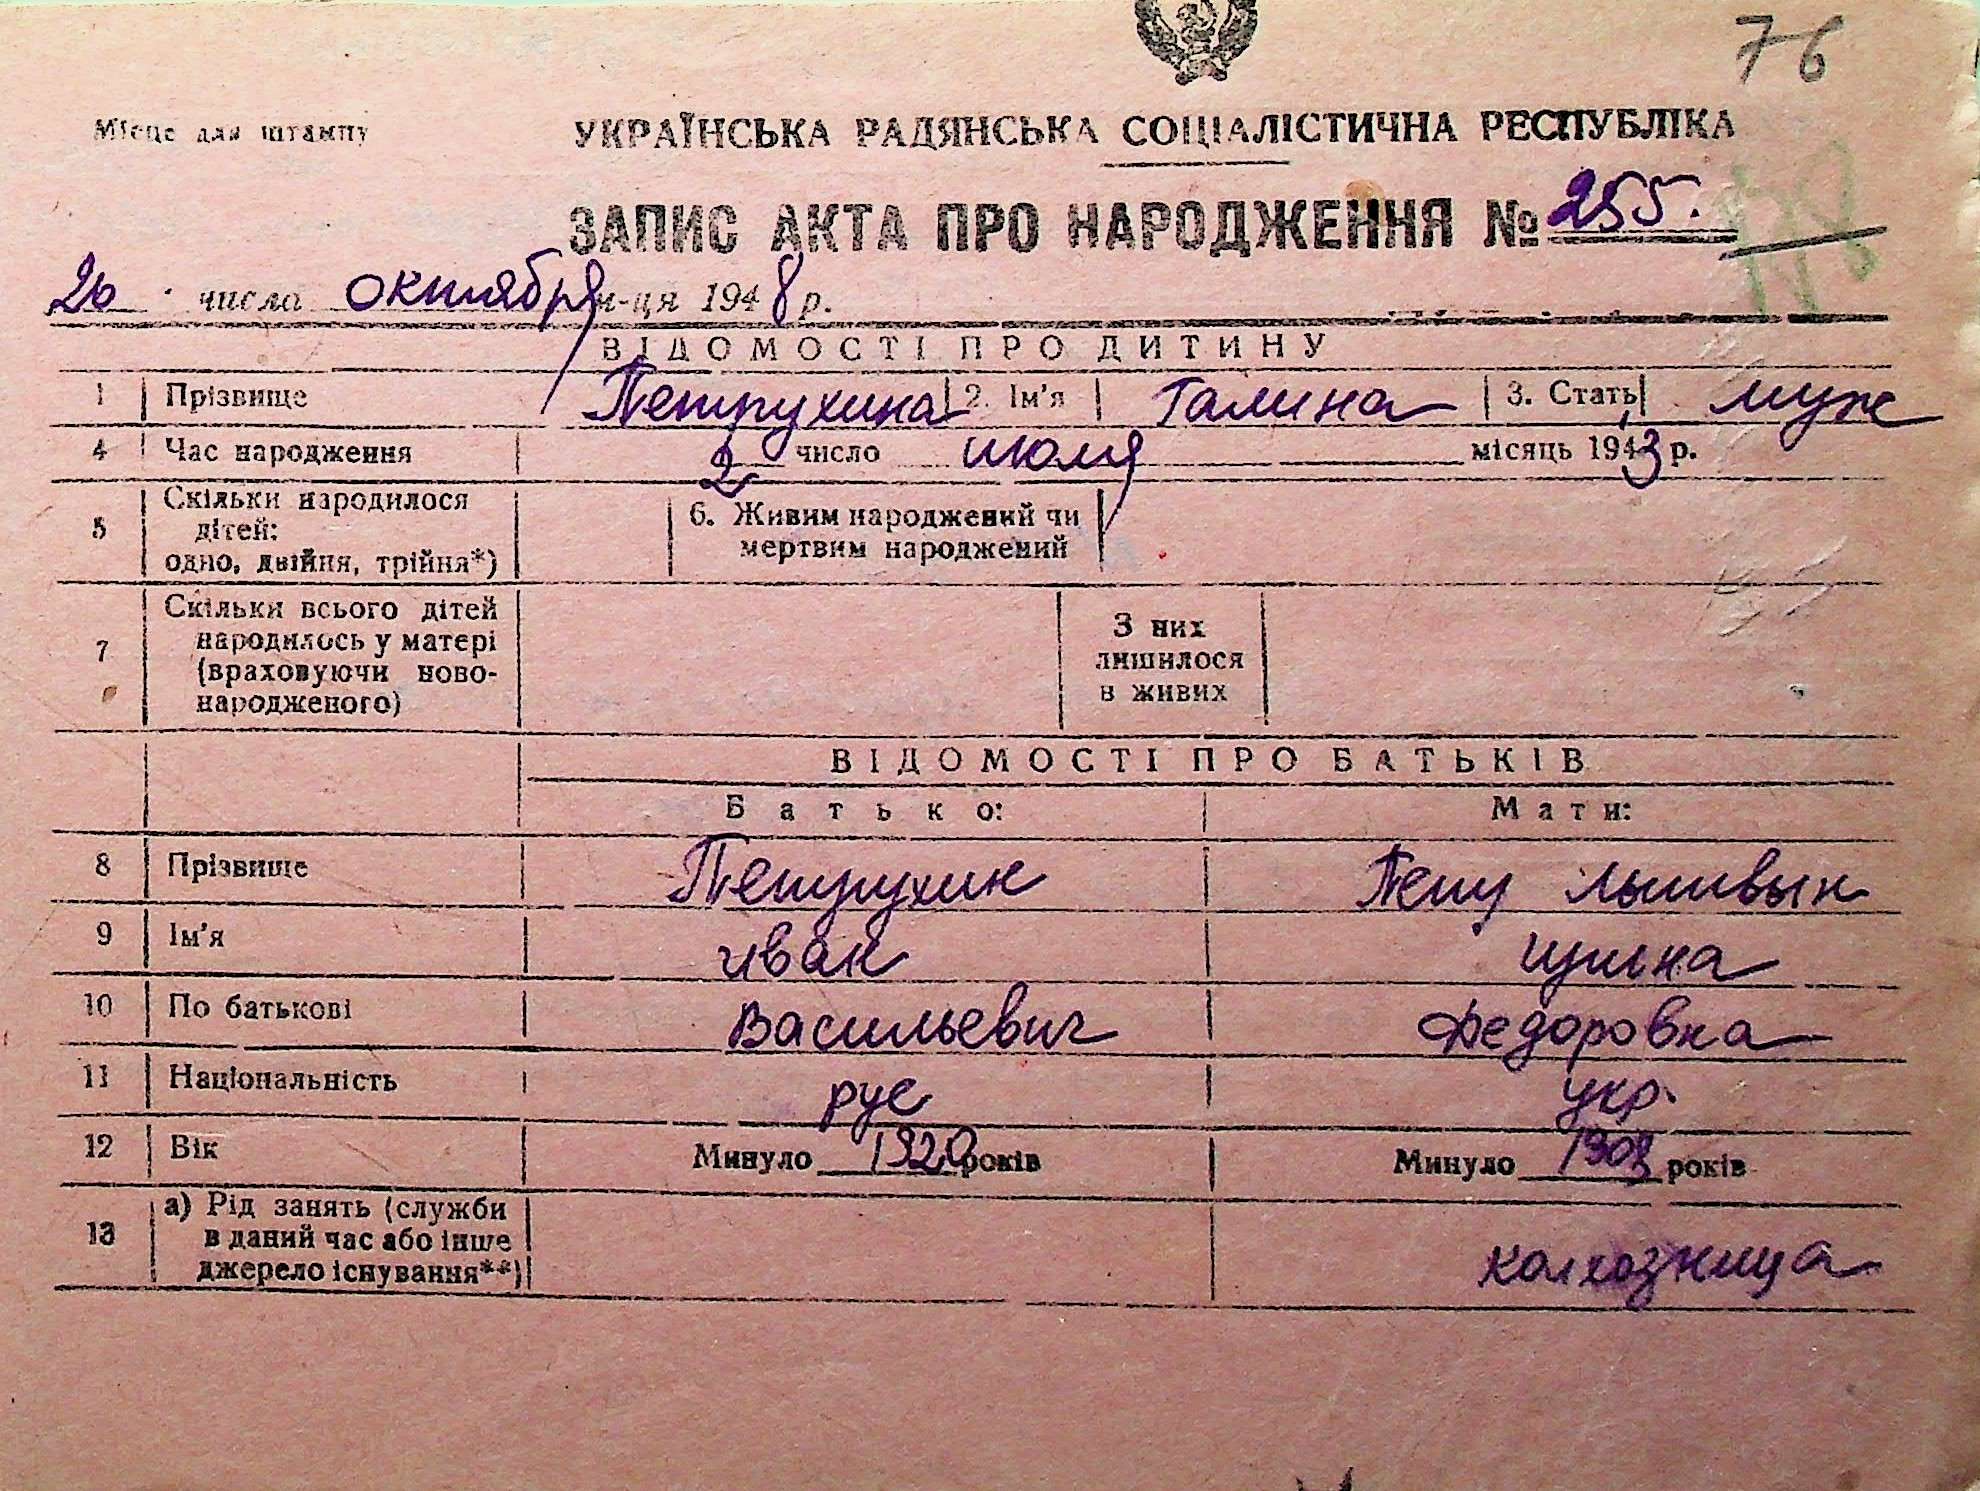 76
Місце для штампу
УКРАЇНСЬКА РАДЯНСЬКА СОЦІАЛІСТИЧНА РЕСПУБЛІКА
ЗАПИС АКТА ПРО НАРОДЖЕННЯ № 255.
26 числа октября м-ця 1948 р.
ВІДОМОСТІ ПРО ДИТИНУ
1 Прізвище Петрухина 2. Ім'я Галина 3. Стать муж
4 Час народження 2 число июля місяць 1943 р.
5 Скільки народилося дітей: одно, двійня, трійня*) 6. Живим народжений чи мертвим народжений
7 Скільки всього дітей народилось у матері (враховуючи ново-народженого) З них лишилося в живих
ВІДОМОСТІ ПРО БАТЬКІВ
Батько: Мати:
8 Прізвище Петрухин
9 Ім'я Иван
10 По батькові Васильевич Федоровна
11 Національність рус укр.
12 Вік Минуло 1920 років Минуло 1908 років
13 а) Рід занять (служби в даний час або інше джерело існування**) колхозница